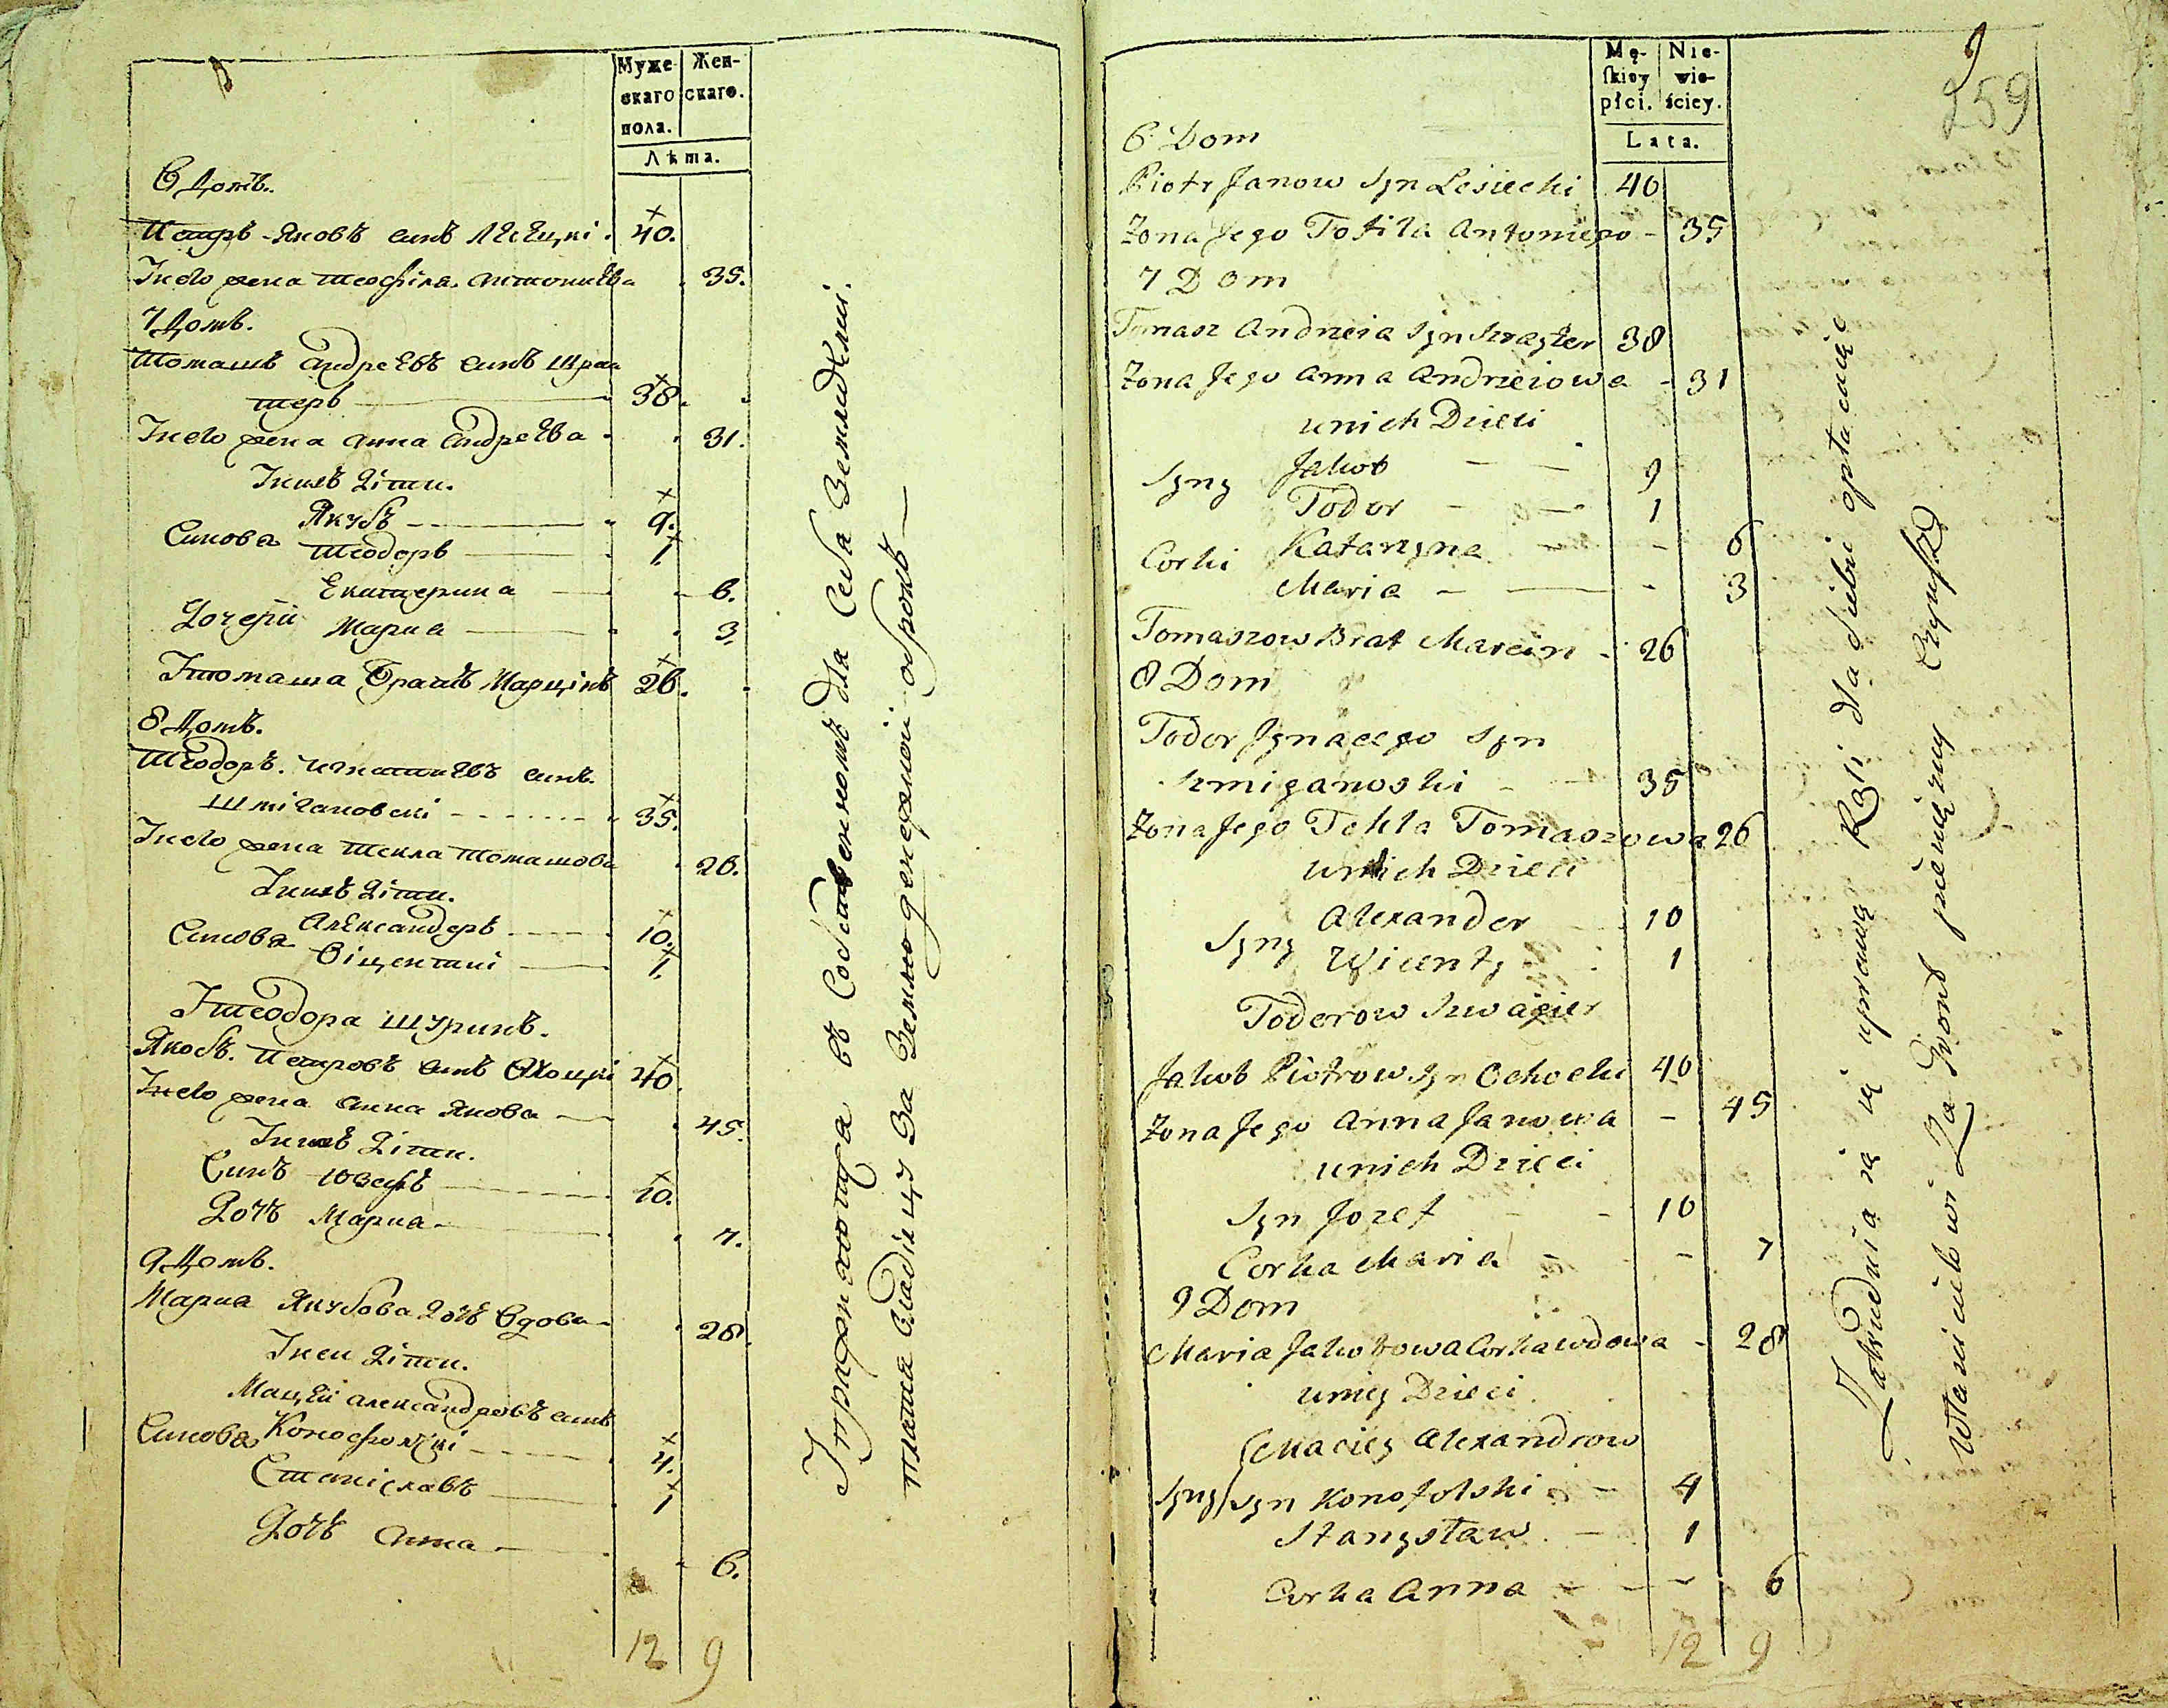 8
Муже-
скаго
пола.
Жен-
скаго.
Лѣта.
6 Домъ.
Петръ Яковъ синъ Лесѣцкі 40.
Інего жена Теофіла Антониева 35.
7 Домъ.
Томашъ Андреѣвъ синъ Шрая
теръ 38.
Інего жена Анна Андреѣва 31.
Інихъ Діти.
Синова Якубъ 9.
Теодоръ 1.
Екатерина 6.
Дочери Мариа 3.
Ітомаша Братъ Марцінъ 26.
8 Домъ.
Теодоръ Игнатиѣвъ синъ.
Шмігановскі 35.
Інего жена Текла Томашова 26.
Інихъ Діти.
Синова Александеръ 10.
Віцентиі 1.
Ітеодора Шуринъ.
Якобъ Петровъ синъ Охоцкі 40.
Інего жена Анна Якова 45.
Інихъ Діти.
Синъ Юзефъ 10.
Дочъ Мариа 7.
9 Домъ.
Мариа Якубова Дочъ Вдова 28.
Інеи Діти.
Мацѣй Александровъ синъ
Синова Конофолскі 4.
Станіславъ 1
Дочъ Анна 6.
12 9
для Себа Земледѣлиі.
платя Владѣлцу За Землю денежной оброкъ
9
259
Mę-
skiey
płci.
Nie-
wie-
ściey.
Lata.
6 Dom
Piotr Janow Syn Lesiecki 40
Zona Jego Tofila Antoniego 35
7 Dom
Tomasz Andrzeia Syn Szrayter 38
Zona Jego Anna Andrzeiowa 31
unich Dzieci
Syny Jakob 9
Todor 1
Corki Katarzyna 6
Maria 3
Tomaszow Brat Marcin 26
8 Dom
Todor Jgnacego Syn
Szmiganoski 35
Zona Jego Tekla Tomaszowa 26
unich Dzieci
Syny Alexander 10
Wicenty 1
Todorow Szwagier
Jakob Piotrow Syn Ochocki 40
Zona Jego Anna Janowa 45
unich Dzieci
Syn Jozef 10
Corka Maria 7
9 Dom
Maria Jakobowa Corka wdowa 28
uniey Dzieci
Maciey Alexandrow
Syny Syn Konofolski 4
Stanysław 1
Corka Anna 6
12 9
Zatrudnia sią uprawą Roli dla siebie opłacaiąc
Własicielowi Za Gront pieniężny Czynsz